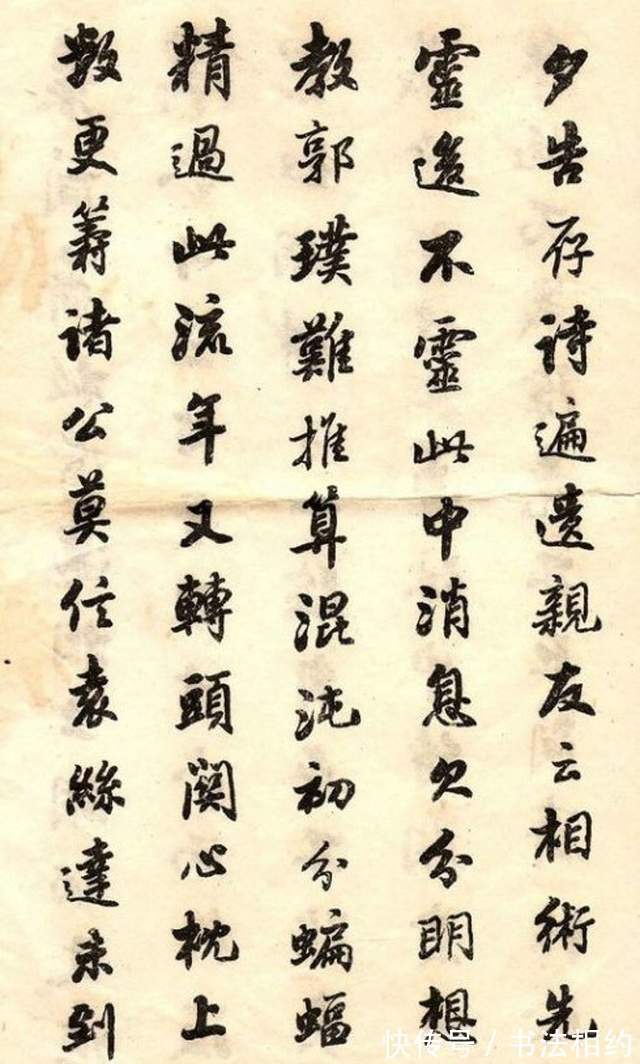 夕告存詩遍遺親友云相術先
靈後不靈此中消息欠分明想
教郭璞難推算混沌初分蝙蝠
精過此流年又轉頭關心枕上
數更籌諸公莫信袁絲達未到
快传号 / 书法相约